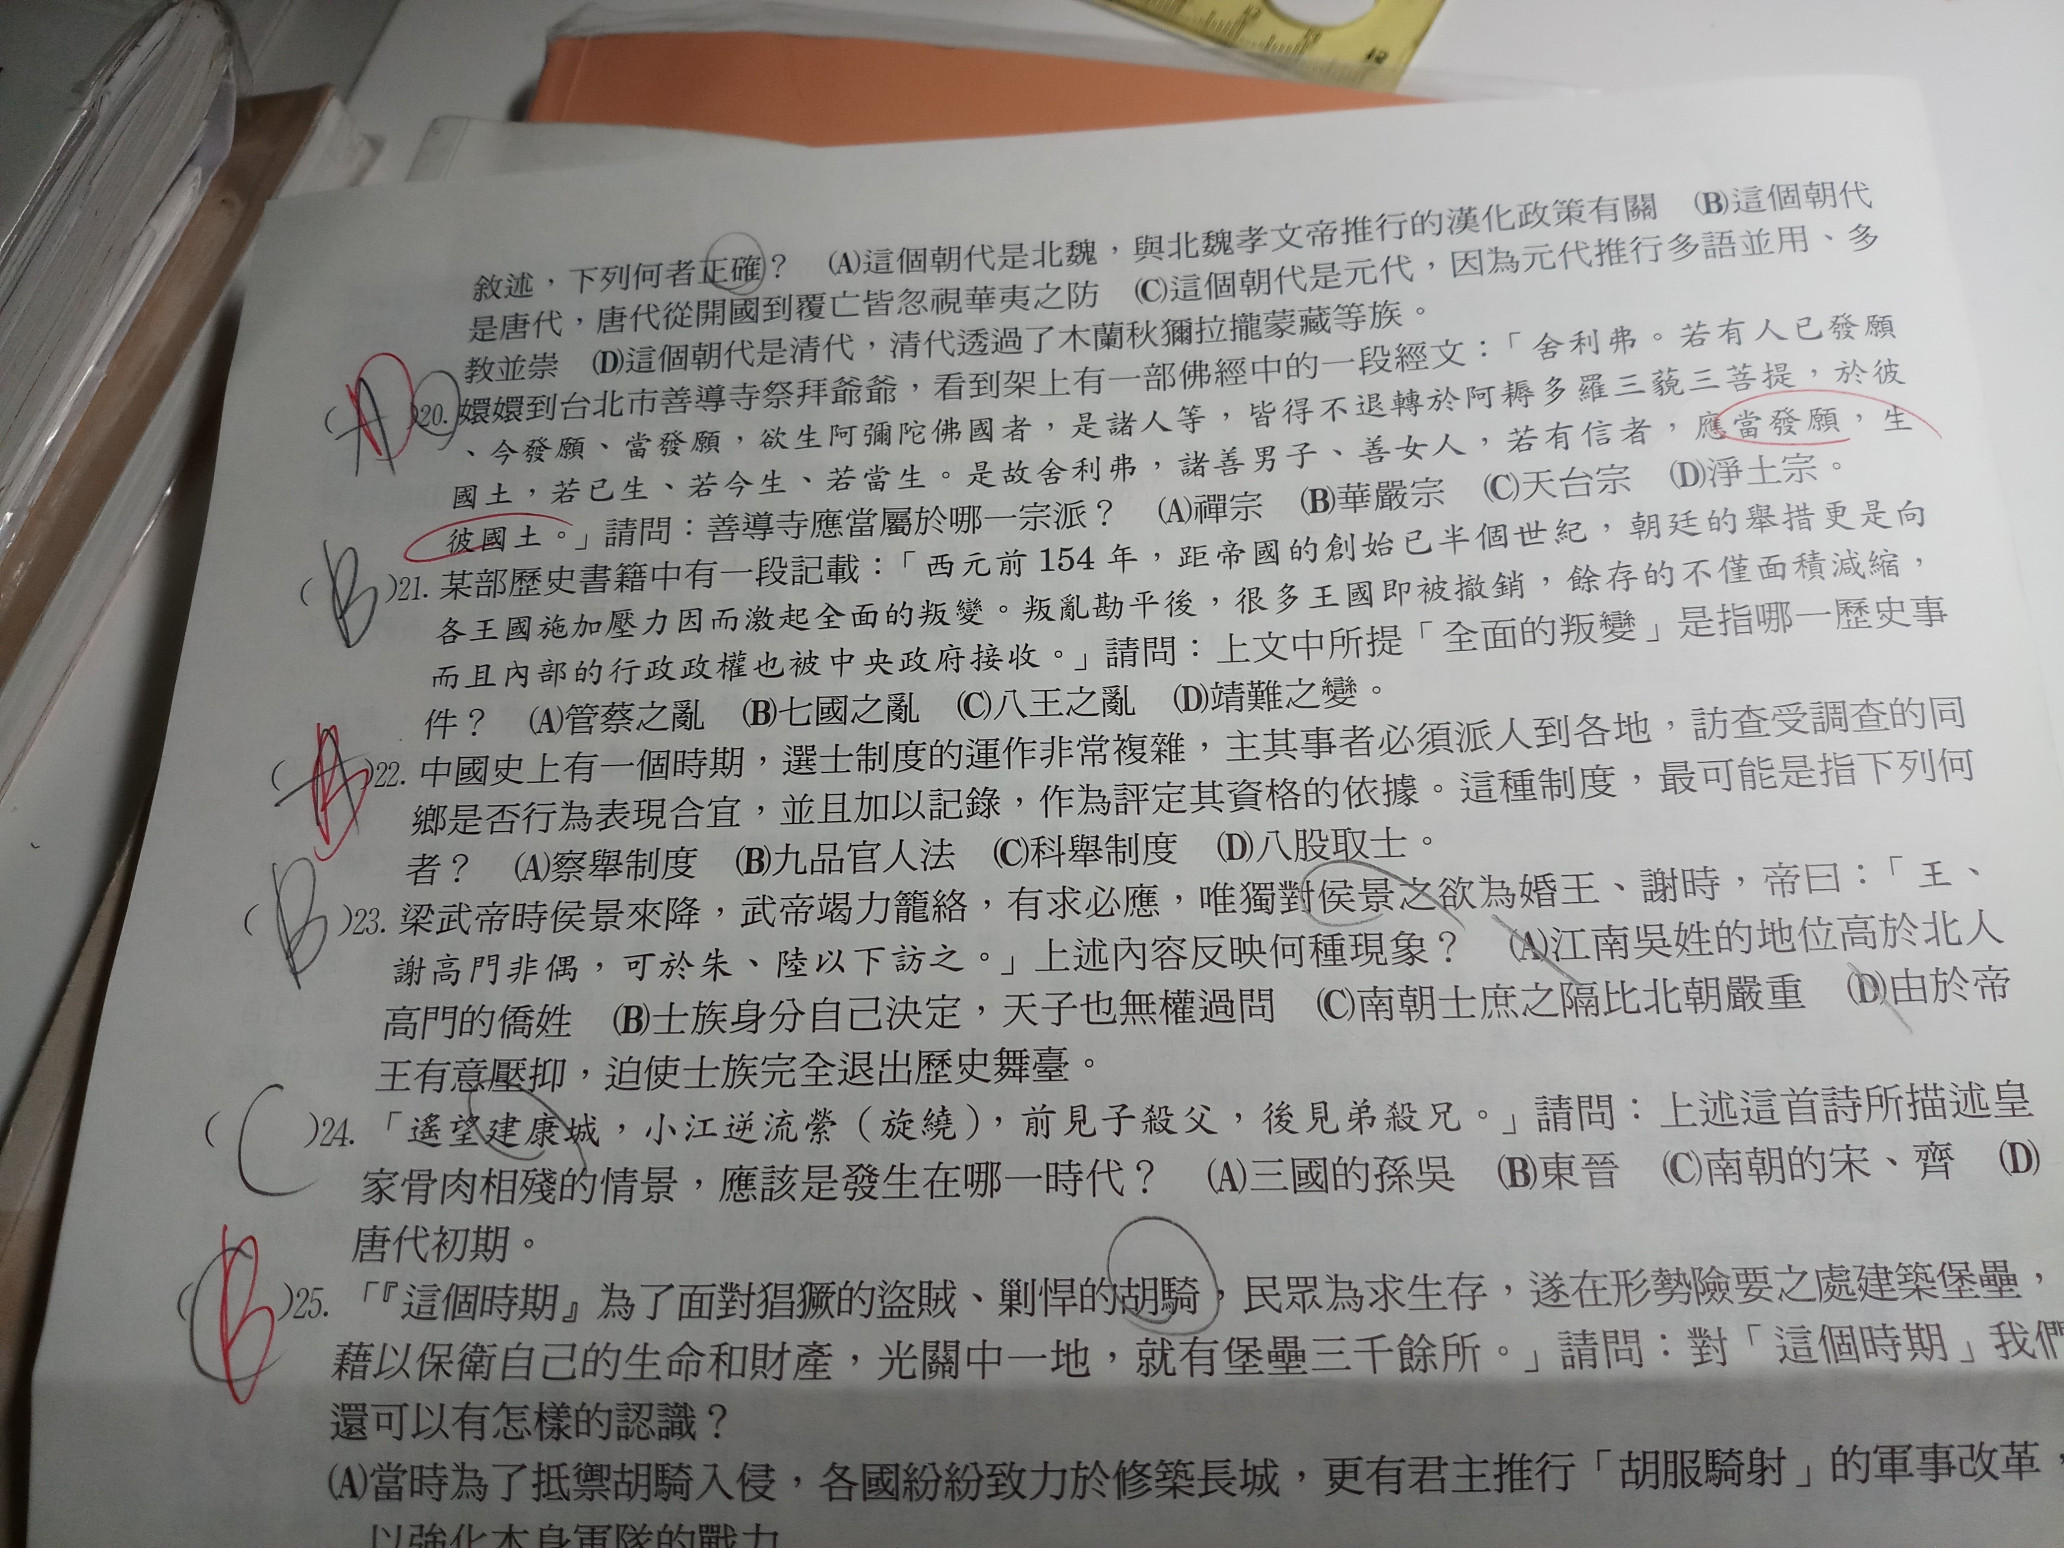 敘述，下列何者正確？　(A)這個朝代是北魏，與北魏孝文帝推行的漢化政策有關　(B)這個朝代
是唐代，唐代從開國到覆亡皆忽視華夷之防　(C)這個朝代是元代，因為元代推行多語並用、多
教並崇　(D)這個朝代是清代，清代透過了木蘭秋獮拉攏蒙藏等族。
(D)20. 嬛嬛到台北市善導寺祭拜爺爺，看到架上有一部佛經中的一段經文：「舍利弗。若有人已發願
、今發願、當發願，欲生阿彌陀佛國者，是諸人等，皆得不退轉於阿耨多羅三藐三菩提，於彼
國土，若已生、若今生、若當生。是故舍利弗，諸善男子、善女人，若有信者，應當發願，生
彼國土。」請問：善導寺應當屬於哪一宗派？　(A)禪宗　(B)華嚴宗　(C)天台宗　(D)淨土宗。
(B)21. 某部歷史書籍中有一段記載：「西元前 154 年，距帝國的創始已半個世紀，朝廷的舉措更是向
各王國施加壓力因而激起全面的叛變。叛亂勘平後，很多王國即被撤銷，餘存的不僅面積減縮，
而且內部的行政政權也被中央政府接收。」請問：上文中所提「全面的叛變」是指哪一歷史事
件？　(A)管蔡之亂　(B)七國之亂　(C)八王之亂　(D)靖難之變。
(B)22. 中國史上有一個時期，選士制度的運作非常複雜，主其事者必須派人到各地，訪查受調查的同
鄉是否行為表現合宜，並且加以記錄，作為評定其資格的依據。這種制度，最可能是指下列何
者？　(A)察舉制度　(B)九品官人法　(C)科舉制度　(D)八股取士。
(B)23. 梁武帝時侯景來降，武帝竭力籠絡，有求必應，唯獨對侯景之欲為婚王、謝時，帝曰：「王、
謝高門非偶，可於朱、陸以下訪之。」上述內容反映何種現象？　(A)江南吳姓的地位高於北人
高門的僑姓　(B)士族身分自己決定，天子也無權過問　(C)南朝士庶之隔比北朝嚴重　(D)由於帝
王有意壓抑，迫使士族完全退出歷史舞臺。
(C)24. 「遙望建康城，小江逆流縈（旋繞），前見子殺父，後見弟殺兄。」請問：上述這首詩所描述皇
家骨肉相殘的情景，應該是發生在哪一時代？　(A)三國的孫吳　(B)東晉　(C)南朝的宋、齊　(D)
唐代初期。
(B)25. 「『這個時期』為了面對猖獗的盜賊、剽悍的胡騎，民眾為求生存，遂在形勢險要之處建築堡壘，
藉以保衛自己的生命和財產，光關中一地，就有堡壘三千餘所。」請問：對「這個時期」我們
還可以有怎樣的認識？
(A)當時為了抵禦胡騎入侵，各國紛紛致力於修築長城，更有君主推行「胡服騎射」的軍事改革，
以強化本身軍隊的戰力